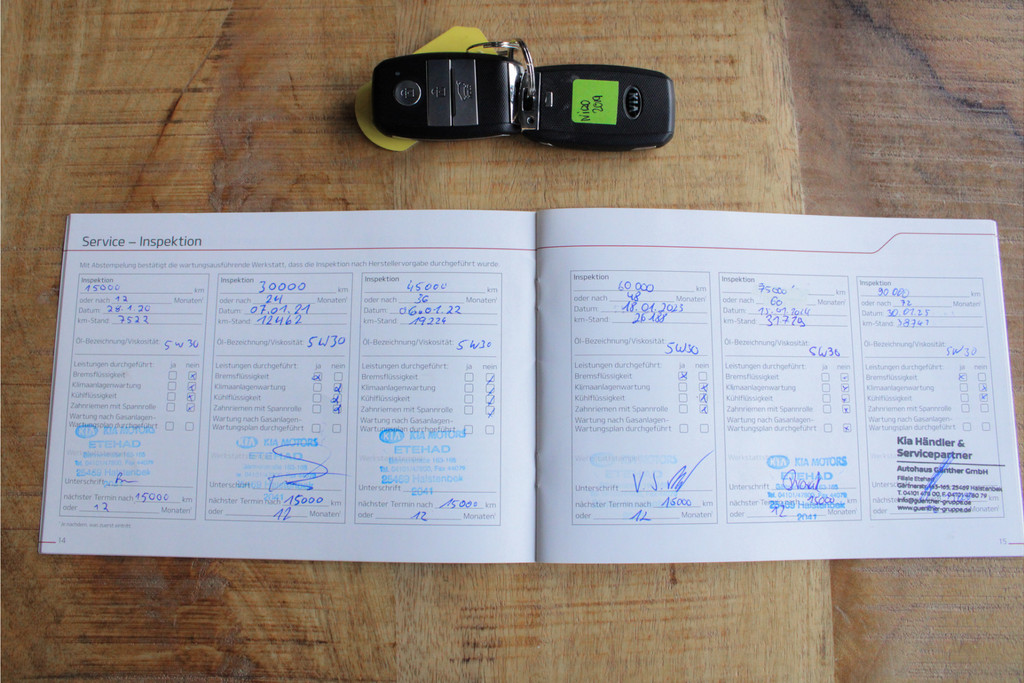 KIA
NiRO
2019
Service – Inspektion
Mit Abstempelung bestätigt die wartungsausführende Werkstatt, dass die Inspektion nach Herstellervorgabe durchgeführt wurde
Inspektion
15000 km
oder nach 12 Monaten¹
Datum: 28.1.20
km-Stand: 7522
Öl-Bezeichnung/Viskosität:
5W30
Leistungen durchgeführt: ja nein
Bremsflüssigkeit
Klimaanlagenwartung
Kühlflüssigkeit
Zahnriemen mit Spannrolle
Wartung nach Gasanlagen-
Wartungsplan durchgeführt
KIA MOTORS
ETEHAD
25469 Halstenbek
Unterschrift
nächster Termin nach 15000 km
oder 12 Monaten¹
¹ je nachdem, was zuerst eintritt
14
Inspektion
30000 km
oder nach 24 Monaten¹
Datum: 07.01.21
km-Stand: 12462
Öl-Bezeichnung/Viskosität:
5W30
Leistungen durchgeführt: ja nein
Bremsflüssigkeit
Klimaanlagenwartung
Kühlflüssigkeit
Zahnriemen mit Spannrolle
Wartung nach Gasanlagen-
Wartungsplan durchgeführt
KIA MOTORS
ETEHAD
25469 Halstenbek
2041
Unterschrift
nächster Termin nach 15000 km
oder 12 Monaten¹
Inspektion
45000 km
oder nach 36 Monaten¹
Datum: 06.01.22
km-Stand: 19224
Öl-Bezeichnung/Viskosität:
5W30
Leistungen durchgeführt: ja nein
Bremsflüssigkeit
Klimaanlagenwartung
Kühlflüssigkeit
Zahnriemen mit Spannrolle
Wartung nach Gasanlagen-
Wartungsplan durchgeführt
KIA MOTORS
ETEHAD
25469 Halstenbek
2041
Unterschrift
nächster Termin nach 15000 km
oder 12 Monaten¹
Inspektion
60 000 km
oder nach 48 Monaten¹
Datum: 18.01.2023
km-Stand: 26188
Öl-Bezeichnung/Viskosität:
5W30
Leistungen durchgeführt: ja nein
Bremsflüssigkeit
Klimaanlagenwartung
Kühlflüssigkeit
Zahnriemen mit Spannrolle
Wartung nach Gasanlagen-
Wartungsplan durchgeführt
Unterschrift
nächster Termin nach 15000 km
oder 12 Monaten¹
Inspektion
75000 km
oder nach 60 Monaten¹
Datum: 15.01.2024
km-Stand: 31729
Öl-Bezeichnung/Viskosität:
5W30
Leistungen durchgeführt: ja nein
Bremsflüssigkeit
Klimaanlagenwartung
Kühlflüssigkeit
Zahnriemen mit Spannrolle
Wartung nach Gasanlagen-
Wartungsplan durchgeführt
KIA MOTORS
ETEHAD
25469 Halstenbek
2041
Unterschrift
nächster Termin nach 15000 km
oder 12 Monaten¹
Inspektion
90.000 km
oder nach 72 Monaten¹
Datum: 30.01.25
km-Stand: 38741
Öl-Bezeichnung/Viskosität:
5W30
Leistungen durchgeführt: ja nein
Bremsflüssigkeit
Klimaanlagenwartung
Kühlflüssigkeit
Zahnriemen mit Spannrolle
Wartung nach Gasanlagen-
Wartungsplan durchgeführt
Kia Händler &
Servicepartner
Autohaus Günther GmbH
Filiale Etehad
Gärtnerstr. 163-165, 25469 Halstenbek
info@guenther-gruppe.de
www.guenther-gruppe.de
Unterschrift
nächster Termin nach
oder Monaten¹
15